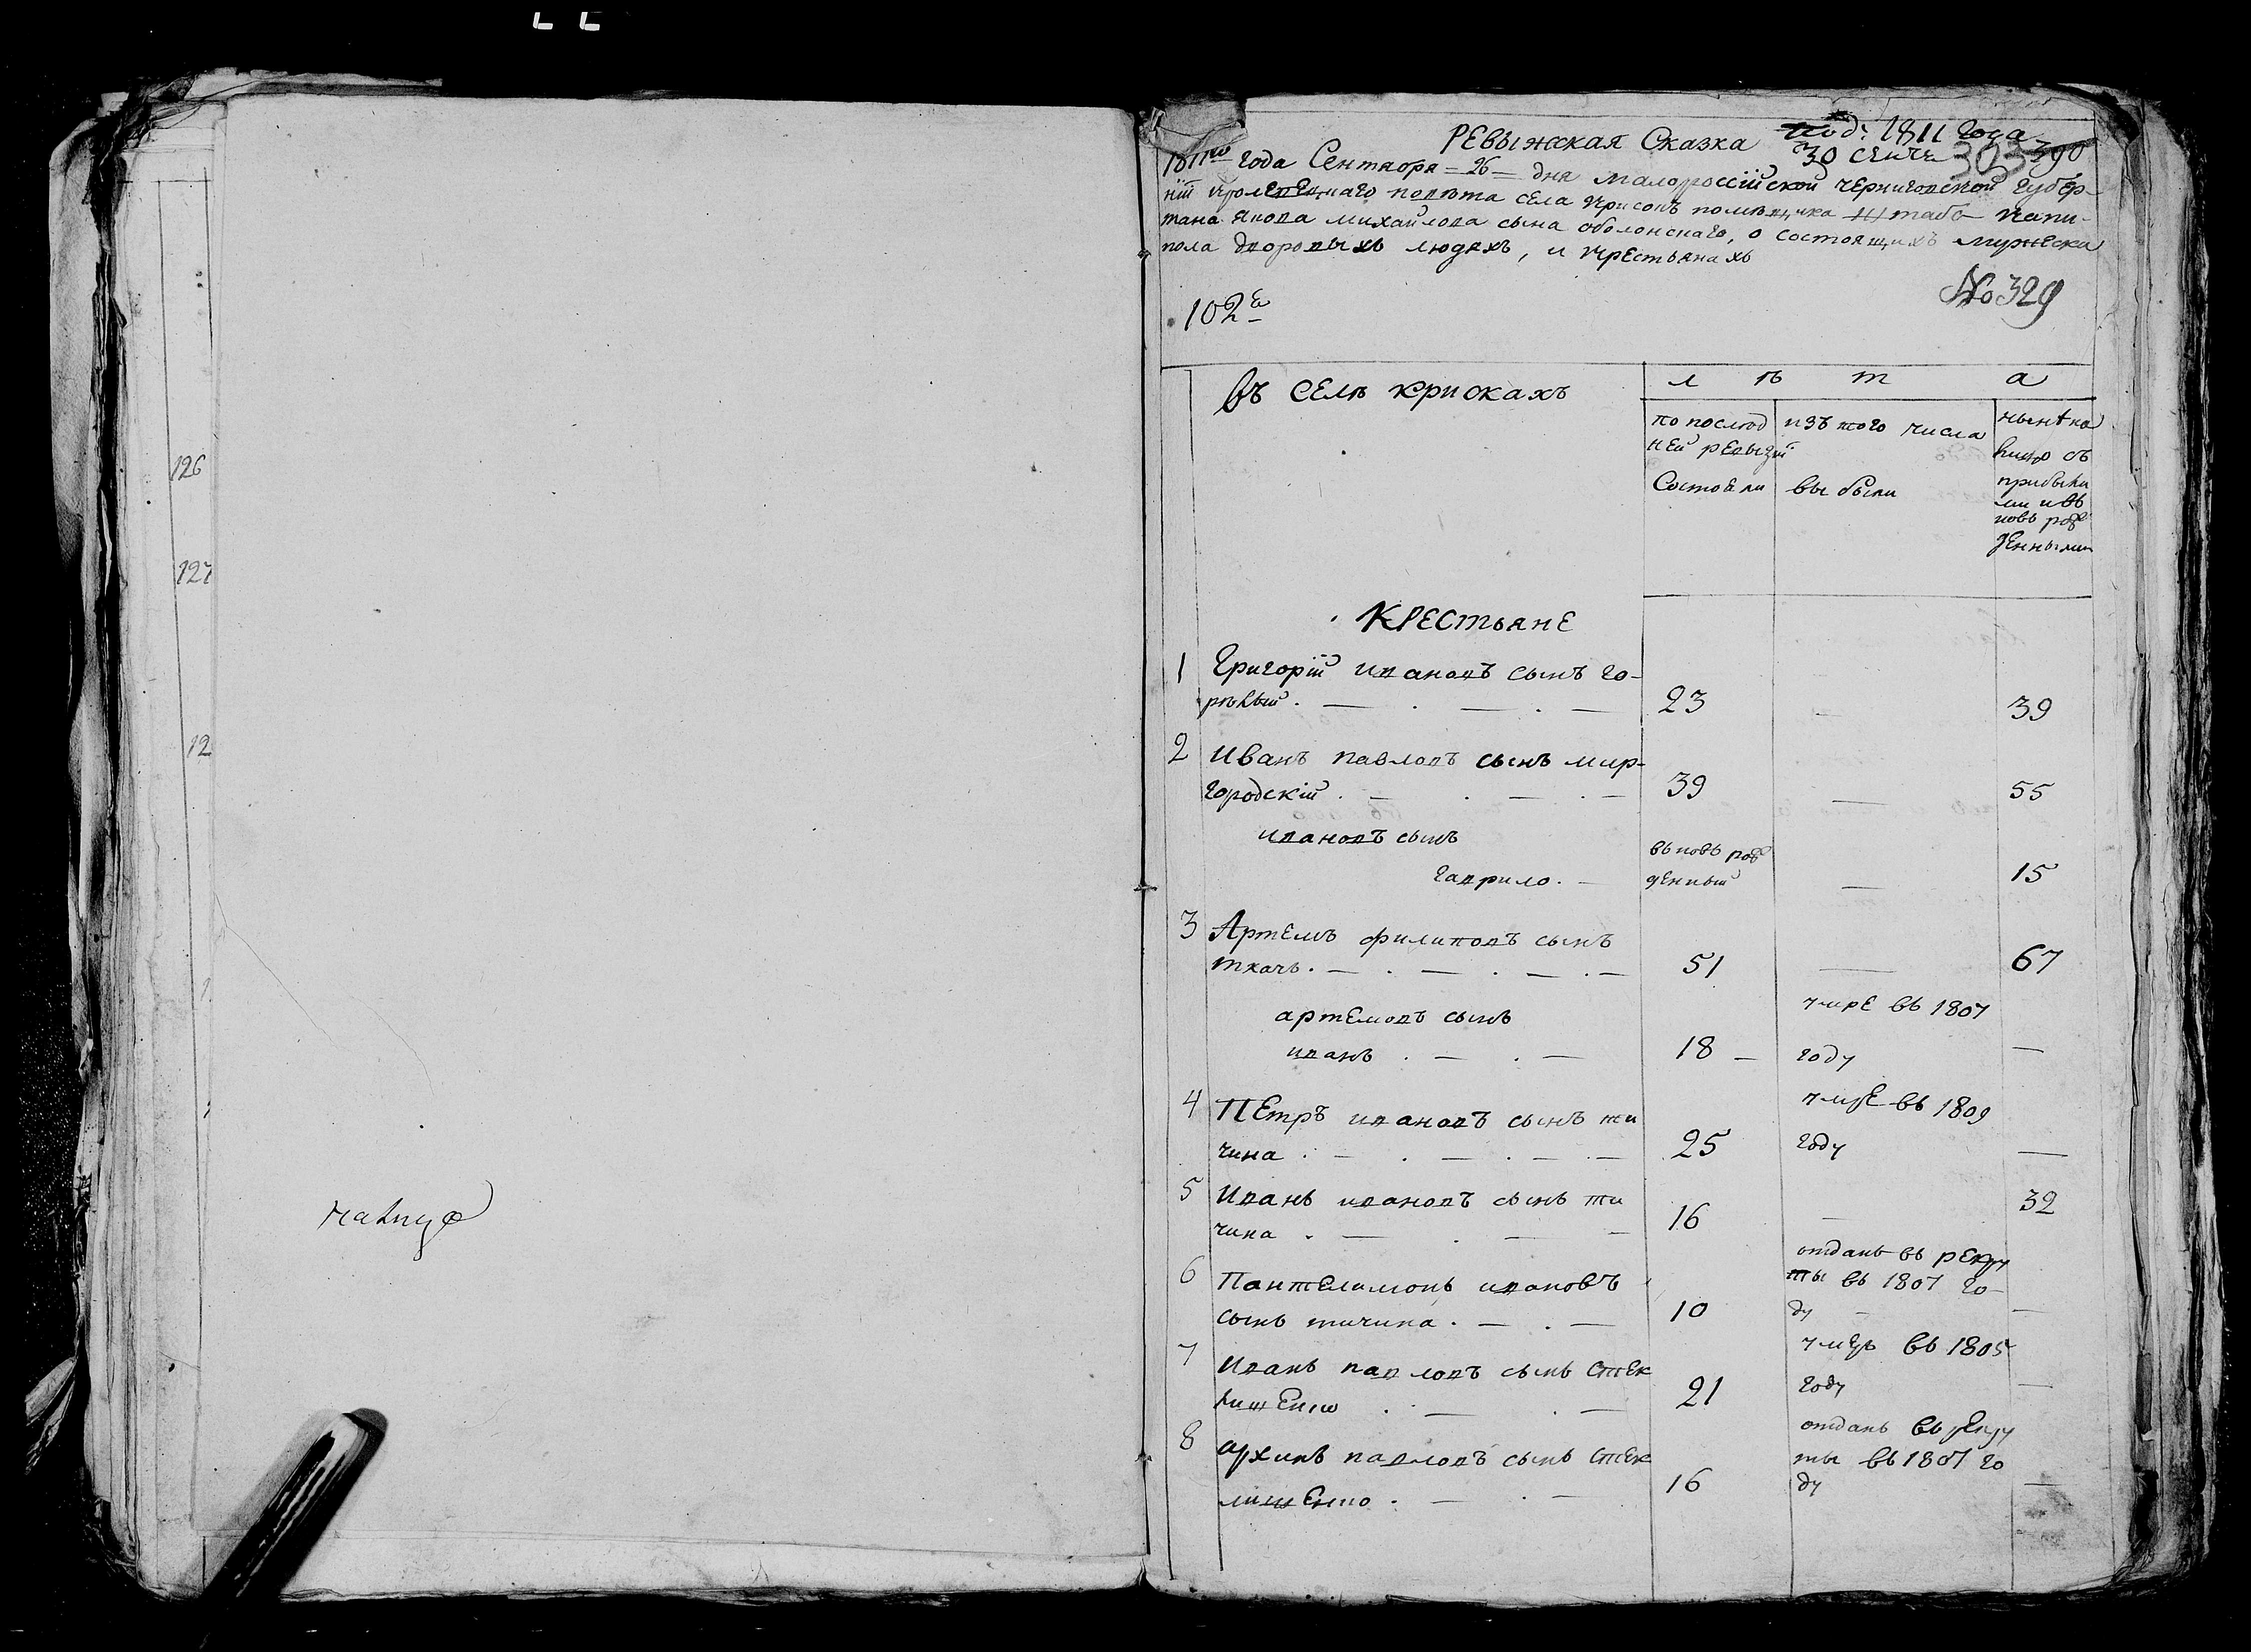 126
127
12
РЕВЫЖСКАЯ Сказка
под: 1811 года
30 сентя
303 390
1811го года Сентября = 26 = дня малороссійской черниговской губер-
ніи кролевецкаго повѣта села крисокъ помѣщика штабс капи-
тана якова михайлова сына оболонскаго, о состоящихъ мужеска
пола дворовыхъ людяхъ, и крестьянахъ
№ 329
102е
въ селѣ крискахъ
л ѣ т а
по послѣд
ней ревызіи
Состояли
изъ того числа
выбыли
нынѣ на
лицо съ
прибылы
ми и вь
новь рож
денными
КРЕСТЬЯНЕ
1 Григорій ивановъ сынъ го-
рѣлый . — . — . — 23 — 39
2 Иванъ павловъ сынъ мир-
городскій . — . — . — 39 — 55
ивановъ сынъ
гаврило . — вьновь рож
денный — 15
3 Артемъ филиповъ сынъ
ткачь . — . — . — . — 51 — 67
артемовъ сынъ
иванъ . — . — 18 — умре вь 1807
году —
4 ПЕтръ ивановъ сынъ ти
чина . — . — . — . — 25 умре вь 1809
году —
5 Иванъ ивановъ сынъ ти
чина . — . — — 16 — 32
6 Пантелимонъ ивановъ
сынъ тичина . — . — 10 отданъ вь рекру
ты вь 1807 го-
ду — —
7 Иванъ павловъ сынъ стек
лишенко . — . — 21 умре вь 1805
году —
8 архипъ павловъ сынъ стек
лишенко . — . — 16 отданъ вь рекру
ты вь 1807 го
ду —